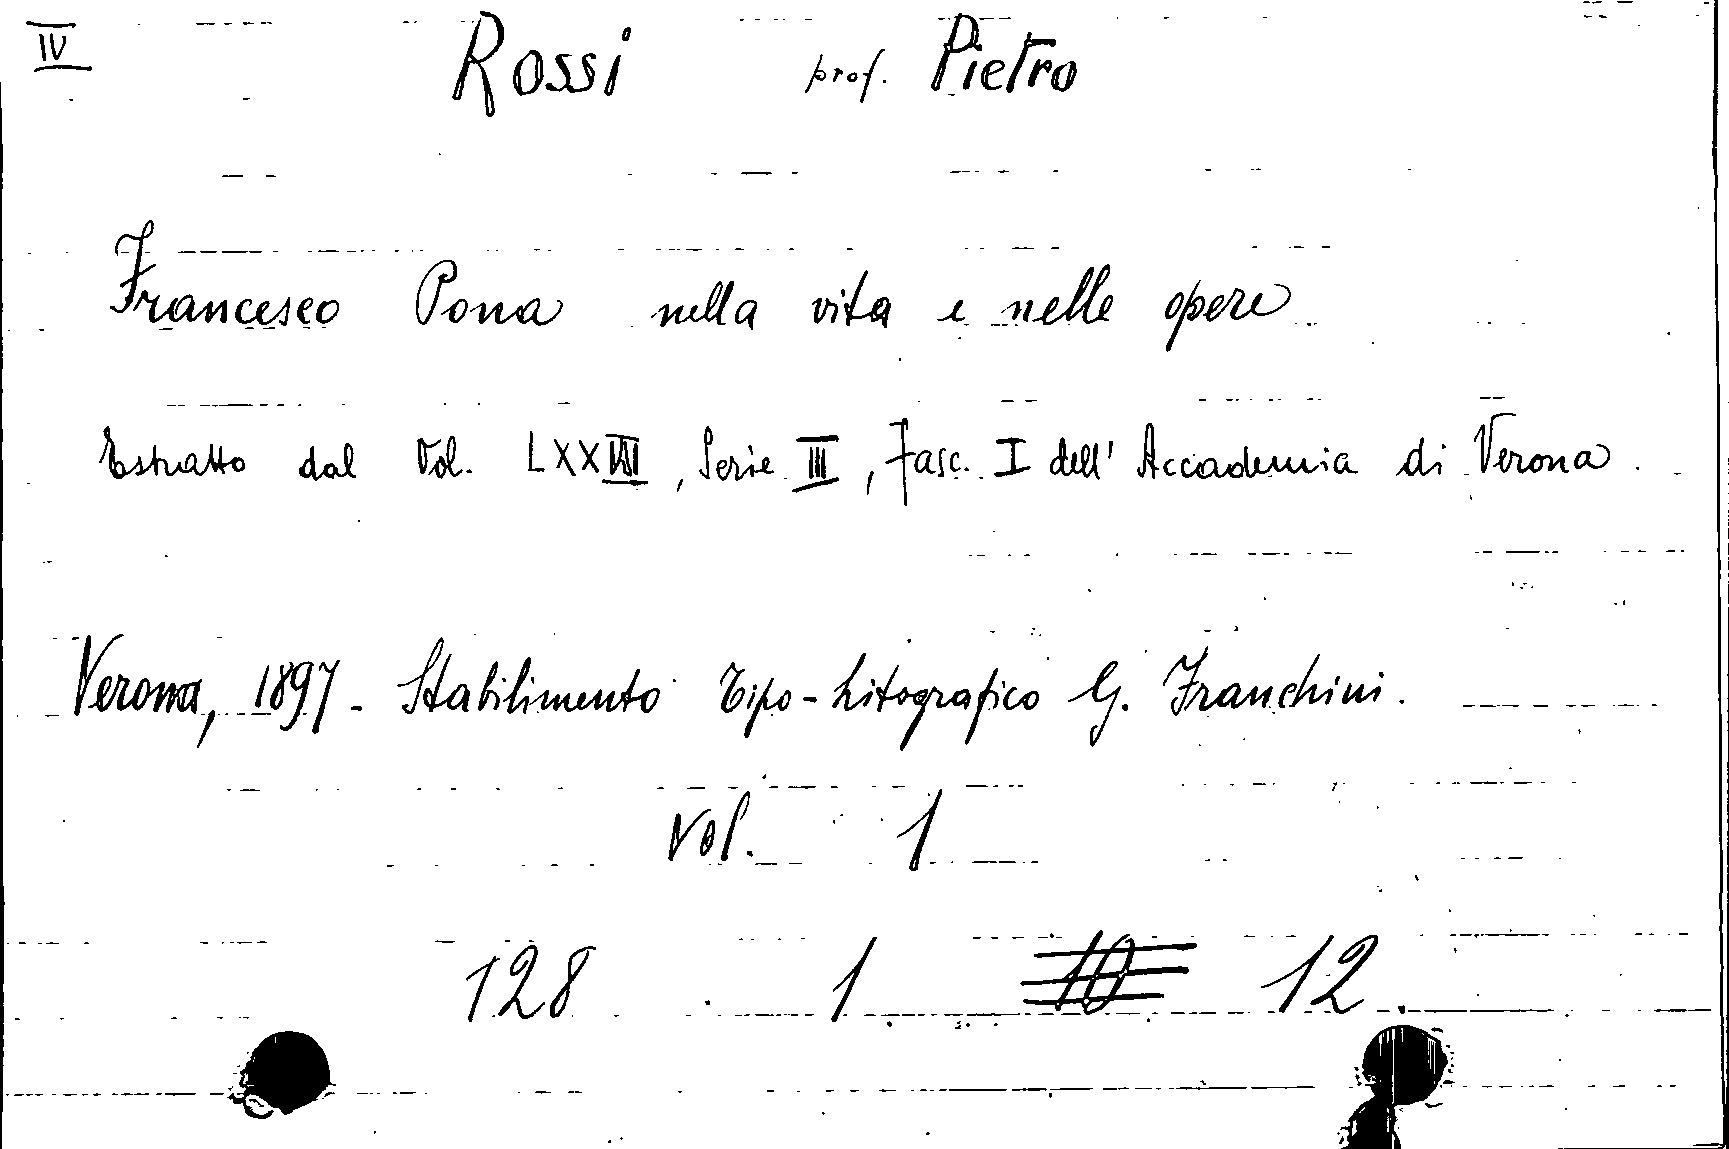 IV
Rossi prof. Pietro
Francesco Pona nella vita e nelle opere
Estratto dal Vol. LXXIII, Serie III, Fasc. I dell' Accademia di Verona.
Verona, 1897 - Stabilimento Tipo-Litografico G. Franchini.
Vol. 1
128 1 10 12.